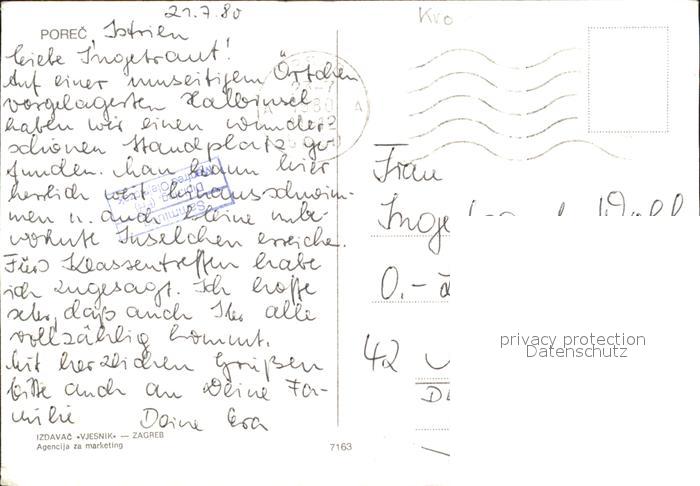 21.7.80
POREČ, Istrien
Liebe Ingetraut!
Auf einer umseitigem Örtchen
vorgelagerten Halbinsel
haben wir einen wunder-
schönen Standplatz ge-
funden. Man kann hier
herrlich weit hinausschwim-
men u. auch kleine unbe-
wohnte Inselchen erreichen.
Fürs Klassentreffen habe
ich zugesagt. Ich hoffe
sehr, daß auch Ihr alle
vollzählig kommt.
Mit herzlichen Grüßen
bitte auch an Deine Fa-
milie Deine Eva
IZDAVAČ «VJESNIK» — ZAGREB
Agencija za marketing
7163
Kro
Frau
Inge
0.-
42
privacy protection
Datenschutz